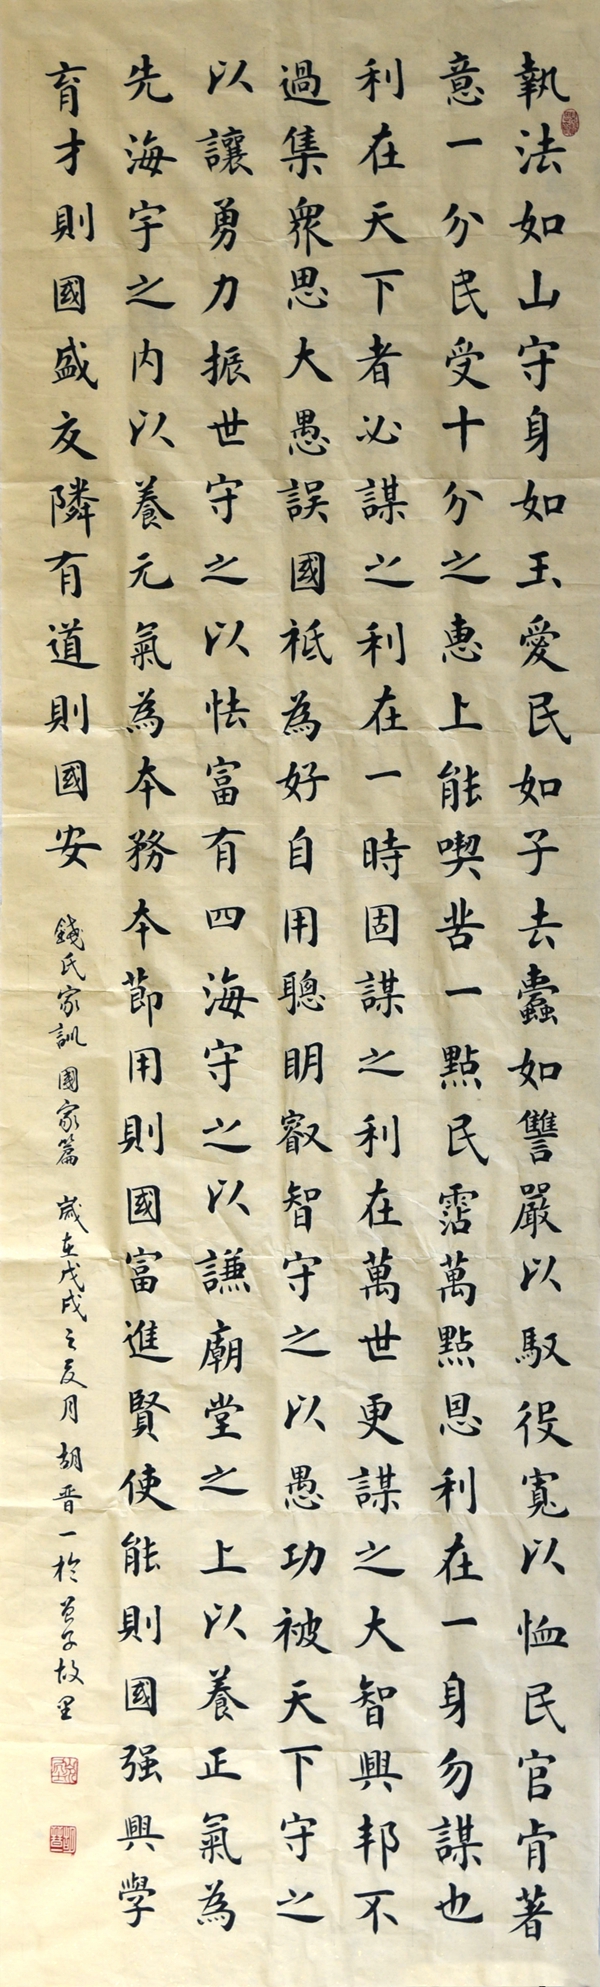 執法如山守身如玉愛民如子去蠹如讐嚴以馭役寬以恤民官肯著
意一分民受十分之惠上能喫苦一點民霑萬點恩利在一身勿謀也
利在天下者必謀之利在一時固謀之利在萬世更謀之大智興邦不
過集衆思大愚誤國祗為好自用聰明叡智守之以愚功被天下守之
以讓勇力振世守之以怯富有四海守之以謙廟堂之上以養正氣為
先海宇之内以養元氣為本務本節用則國富進賢使能則國强興學
育才則國盛交隣有道則國安
錢氏家訓國家篇 歲在戊戌之夏月 胡晋一於曾子故里